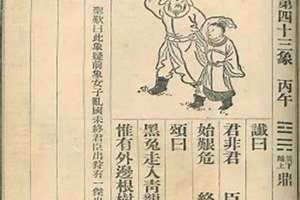 第四十三象 丙午 巽下離上 鼎
讖曰
君非君 臣
始艱危 終
頌曰
黑兔走入青
惟有外邊根樹
聖歎曰此象疑前象女子亂國未終君臣出狩有一傑出